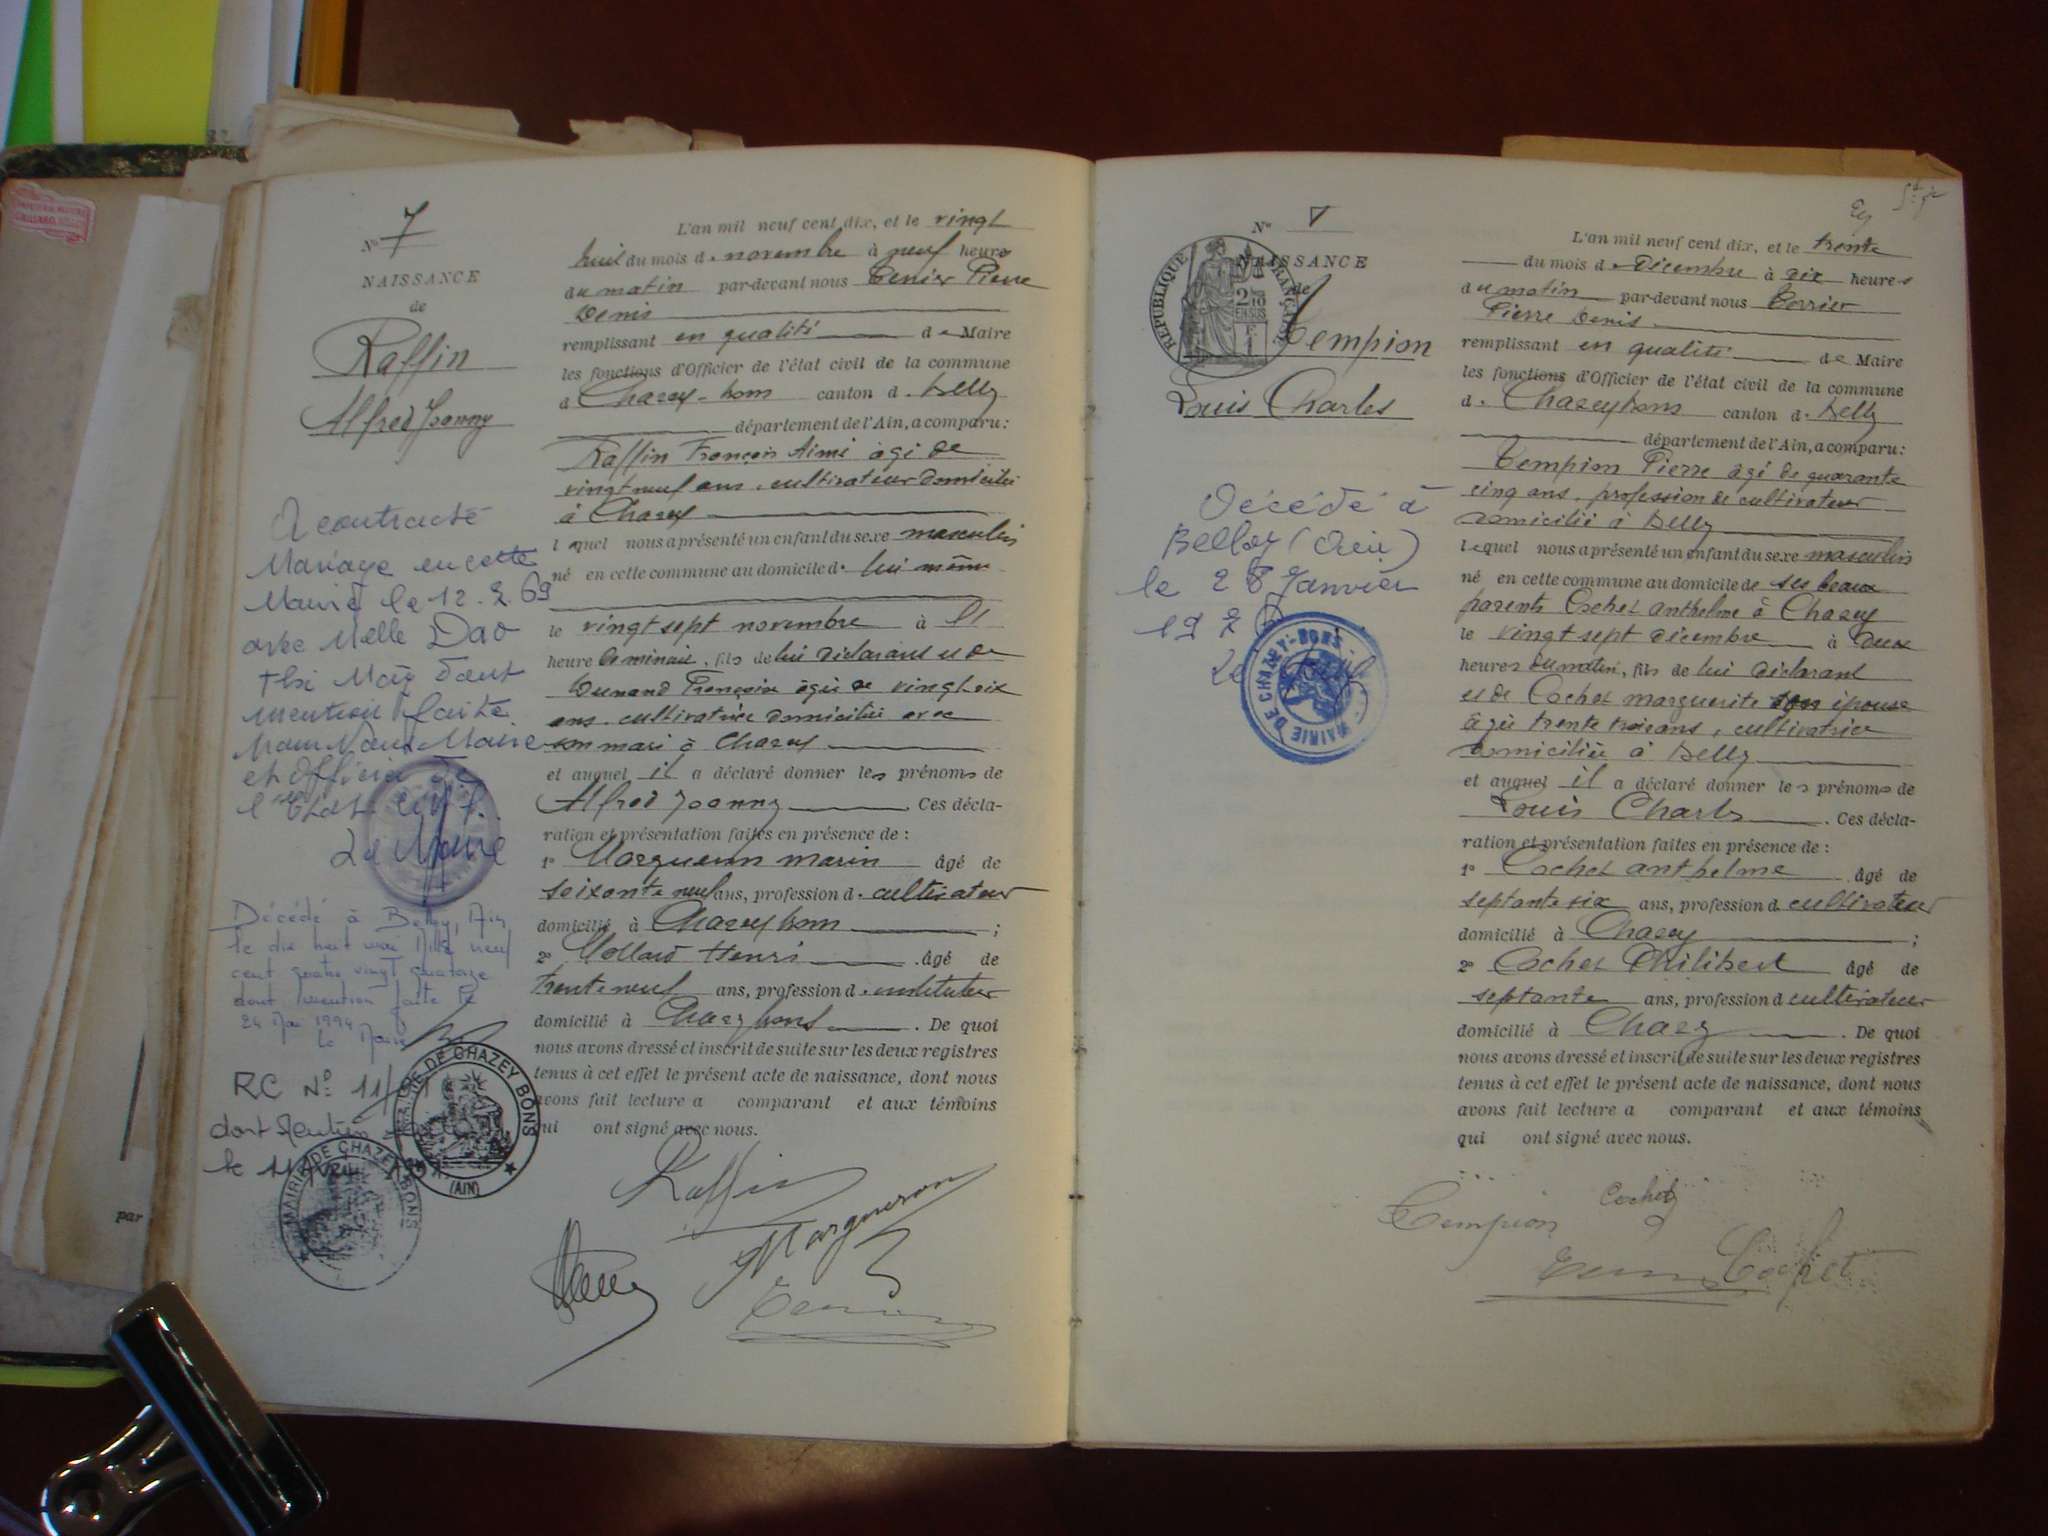 Nº 7
NAISSANCE
de
Raffin
Alfred Joanny
A contracté
Mariage en cette
Mairie le 12.2.69
avec Melle Dao
Thi dont
mention faite
Par Nous Maire
et Officier de
l'Etat Civil.
Le Maire
Décédé à Belley, Ain
le dix huit mai Mille neuf
cent quatre vingt quatorze
dont mention faite le
24 Mai 1994
le Maire
RC Nº 11/
dont Mention
le 11
MAIRIE DE CHAZEY BONS
(AIN)
MAIRIE DE CHAZEY BONS
par
L'an mil neuf cent dix, et le vingt
huit du mois de novembre à neuf heures
du matin par-devant nous Terrier Pierre
Denis
remplissant en qualité de Maire
les fonctions d'Officier de l'état civil de la commune
d Chazey-bons canton d. Belley
département de l'Ain, a comparu:
Raffin François Aimé âgé de
vingt neuf ans, cultivateur domicilié
à Chazey
lequel nous a présenté un enfant du sexe masculin
né en cette commune au domicile de lui même
le vingt sept novembre à
heure de minuit, fils de lui déclarant et de
Dunand Françoise âgée de vingt six
ans, cultivatrice domiciliée avec
son mari à Chazey
et auquel il a déclaré donner les prénoms de
Alfred Joanny Ces décla-
ration et présentation faites en présence de :
1º Margueron marin âgé de
soixante neuf ans, profession d. cultivateur
domicilié à Chazey bons ;
2º Mollard Henri âgé de
trente neuf ans, profession d. instituteur
domicilié à Chazey bons. De quoi
nous avons dressé et inscrit de suite sur les deux registres
tenus à cet effet le présent acte de naissance, dont nous
avons fait lecture a comparant et aux témoins
qui ont signé avec nous.
Raffin
Margueron
Terrier
Nº
NAISSANCE
de
RÉPUBLIQUE FRANÇAISE
2 10
EN SUS
Tempion
Louis Charles
Décédé à
Belley (Ain)
le 28 Janvier
192
MAIRIE DE CHAZEY-BONS
L'an mil neuf cent dix, et le trente
du mois de décembre à dix heures
du matin par-devant nous Terrier
Pierre Denis
remplissant en qualité de Maire
les fonctions d'Officier de l'état civil de la commune
d. Chazey bons canton d. Belley
département de l'Ain, a comparu:
Tempion Pierre âgé de quarante
cinq ans, profession de cultivateur
domicilié à Belley
lequel nous a présenté un enfant du sexe masculin
né en cette commune au domicile de ses beaux
parents Cochet anthelme à Chazey
le vingt sept décembre à deux
heures du matin, fils de lui déclarant
et de Cochet marguerite son épouse
âgée trente trois ans, cultivatrice
domiciliée à Belley
et auquel il a déclaré donner les prénoms de
Louis Charles. Ces décla-
ration et présentation faites en présence de :
1º Cochet anthelme âgé de
septante six ans, profession d. cultivateur
domicilié à Chazey ;
2º Cochet Philibert âgé de
septante ans, profession d cultivateur
domicilié à Chazey. De quoi
nous avons dressé et inscrit de suite sur les deux registres
tenus à cet effet le présent acte de naissance, dont nous
avons fait lecture a comparant et aux témoins
qui ont signé avec nous.
Tempion Cochet
Terrier Cochet